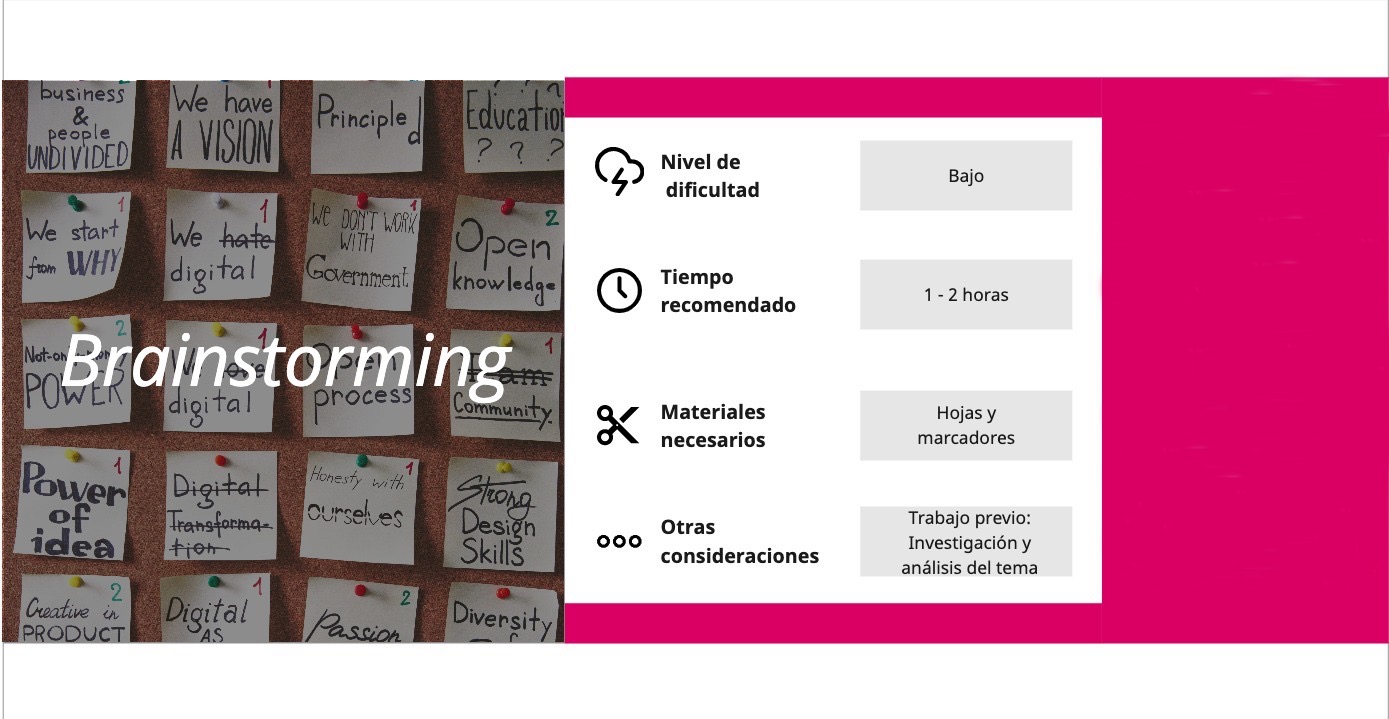 business
&
people
UNDIVIDED
We have
A VISION
Principled
Education
? ? ?
1
We start
from WHY
1
We hate
digital
1
We DON'T WORK
WITH
Government
2
Open
knowledge
2
POWER
1
We love
digital
Open
process
1
Community
Brainstorming
1
Power
of
idea
Digital
Transforma-
tion
1
Honesty with
ourselves
Strong
Design
Skills
2
Creative in
PRODUCT
1
Digital
AS
2
Passion
Diversity
Nivel de
dificultad
Bajo
Tiempo
recomendado
1 - 2 horas
Materiales
necesarios
Hojas y
marcadores
Otras
consideraciones
Trabajo previo:
Investigación y
análisis del tema